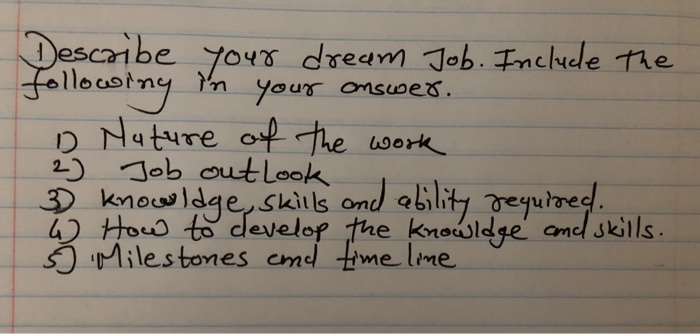 Describe your dream Job. Include the
following in your answer.
1) Nature of the work
2) Job outlook
3) knowldge, skills and ability required.
4) How to develop the knowldge and skills.
5) Milestones and time line